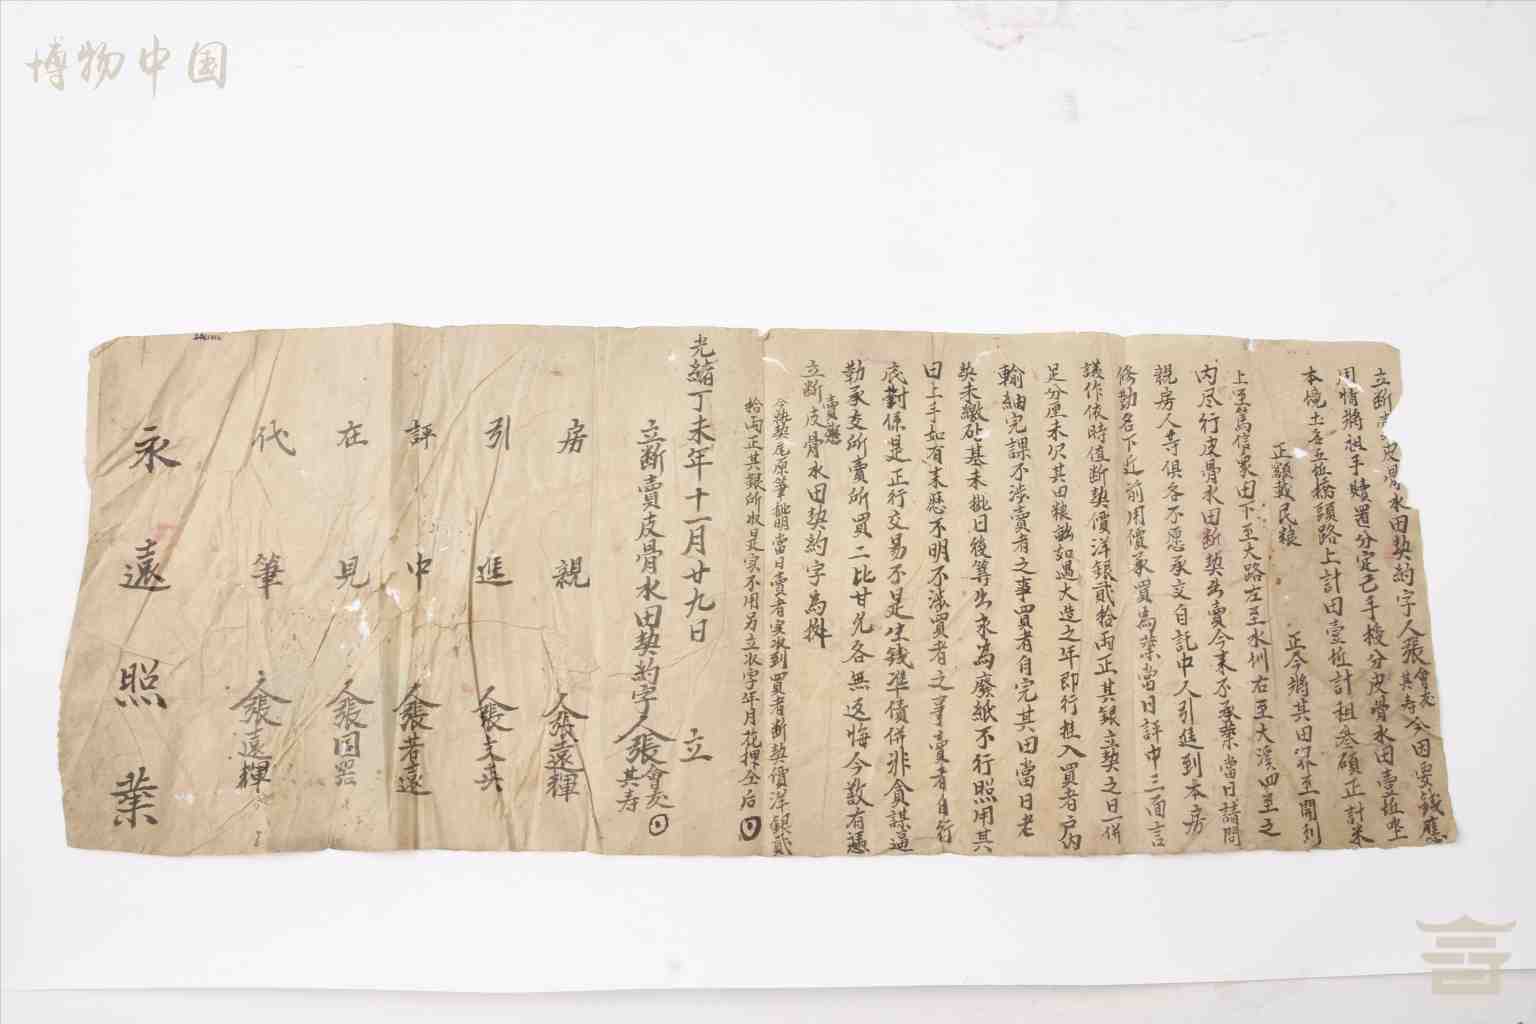 博物中国
立断賣皮骨水田契約字人張會友其寿今因要錢應
用情將祖手贖置分定己手授分皮骨水田壹坵坐
本境土名五坵橋頭路上計田壹坵計租叁碩正計米
正額载民粮
正今將其田界至開列
上至篤信衆田下至大路左至水圳右至大溪四至之
内尽行皮骨水田断契出賣今来不承業當日請問
親房人等俱各不愿承交自託中人引進到本房
修勤名下近前用價承買為業當日評中三面言
議作依時值断契價洋銀貳拾两正其銀立契之日一併
足分厘未欠其田粮畝如遇大造之年即行推入買者户内
輸納完課不涉賣者之事買者自完其田當日老
契未繳砧基未批日後等出來為廢紙不行照用其
田上手如有来歷不明不涉買者之事賣者自行
底對係是正行交易不是生錢準債併非貪謀逼
勒承交所賣所買二比甘允各無返悔今敋有憑
立断賣皮骨水田契約字為拠
憑
今執契尾原筆批明當日賣者实收到買者断契價洋銀貳
拾两正其銀所收是实不用另立收字年月花押全后
光緒丁未年十一月廿九日 立
立断賣皮骨水田契約字人張會友其寿
房親人張遠輝
引進人張文英
評中人張若遠
在見人張同
代筆人張遠輝
永遠照業